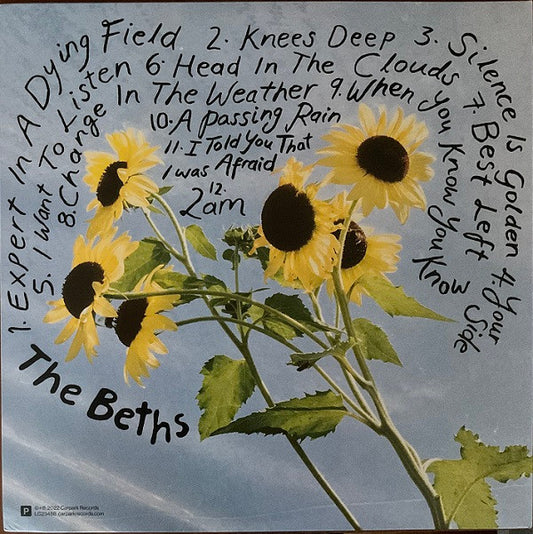 1. Expert In A Dying Field 2. Knees Deep 3. Silence Is Golden 4. Your Side
5. I Want To Listen 6. Head In The Clouds 7. Best Left
8. Change In The Weather 9. When You Know You Know
10. A Passing Rain
11. I Told You That
I was Afraid
12.
2am
The Beths
P
©+℗ 2022 Carpark Records
carparkrecords.com